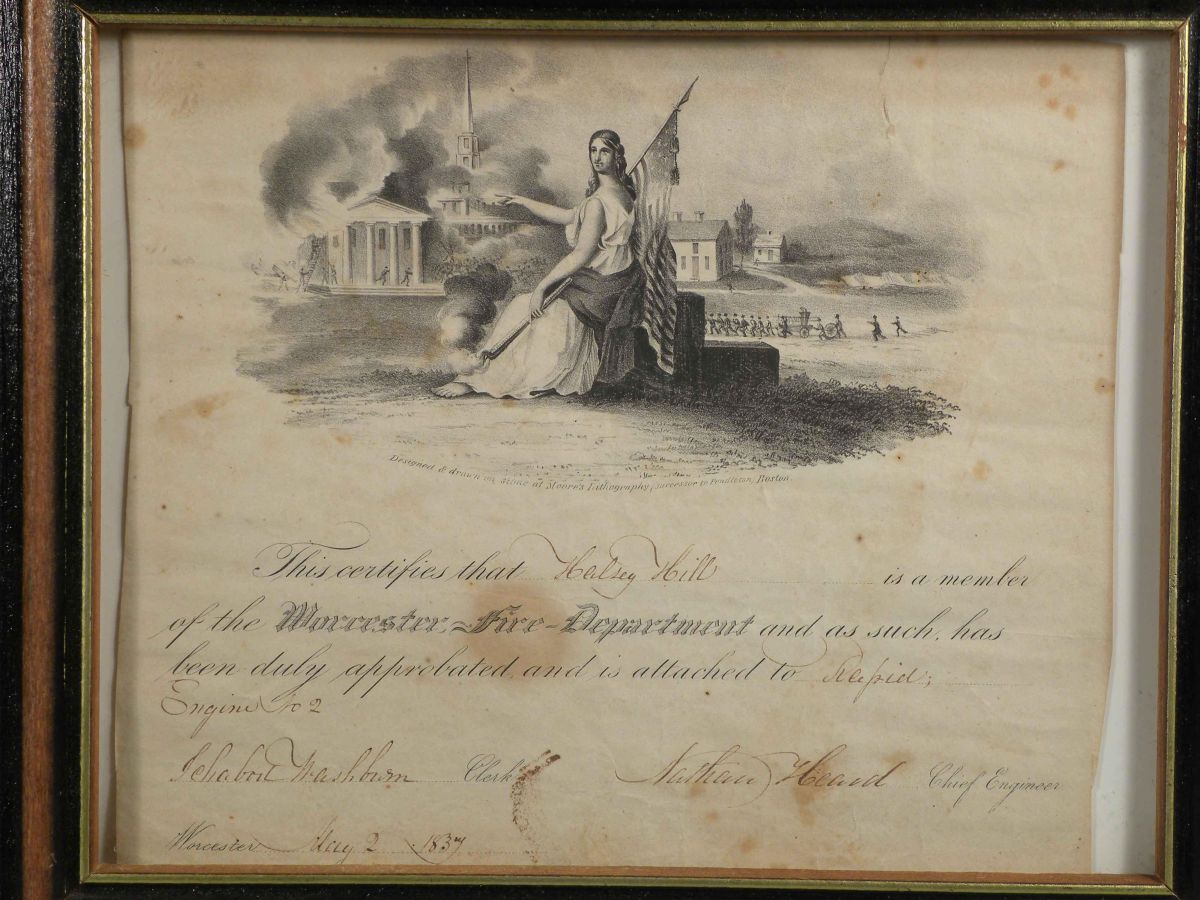 Designed & drawn on Stone at Moore's Lithography, successor to Pendleton, Boston.
This certifies that Halsey Hill is a member
of the Worcester-Fire-Department and as such, has
been duly approbated and is attached to Rapid;
Engine No 2
Ichabod Washburn Clerk Nathan Heard Chief Engineer
Worcester May 2 1837